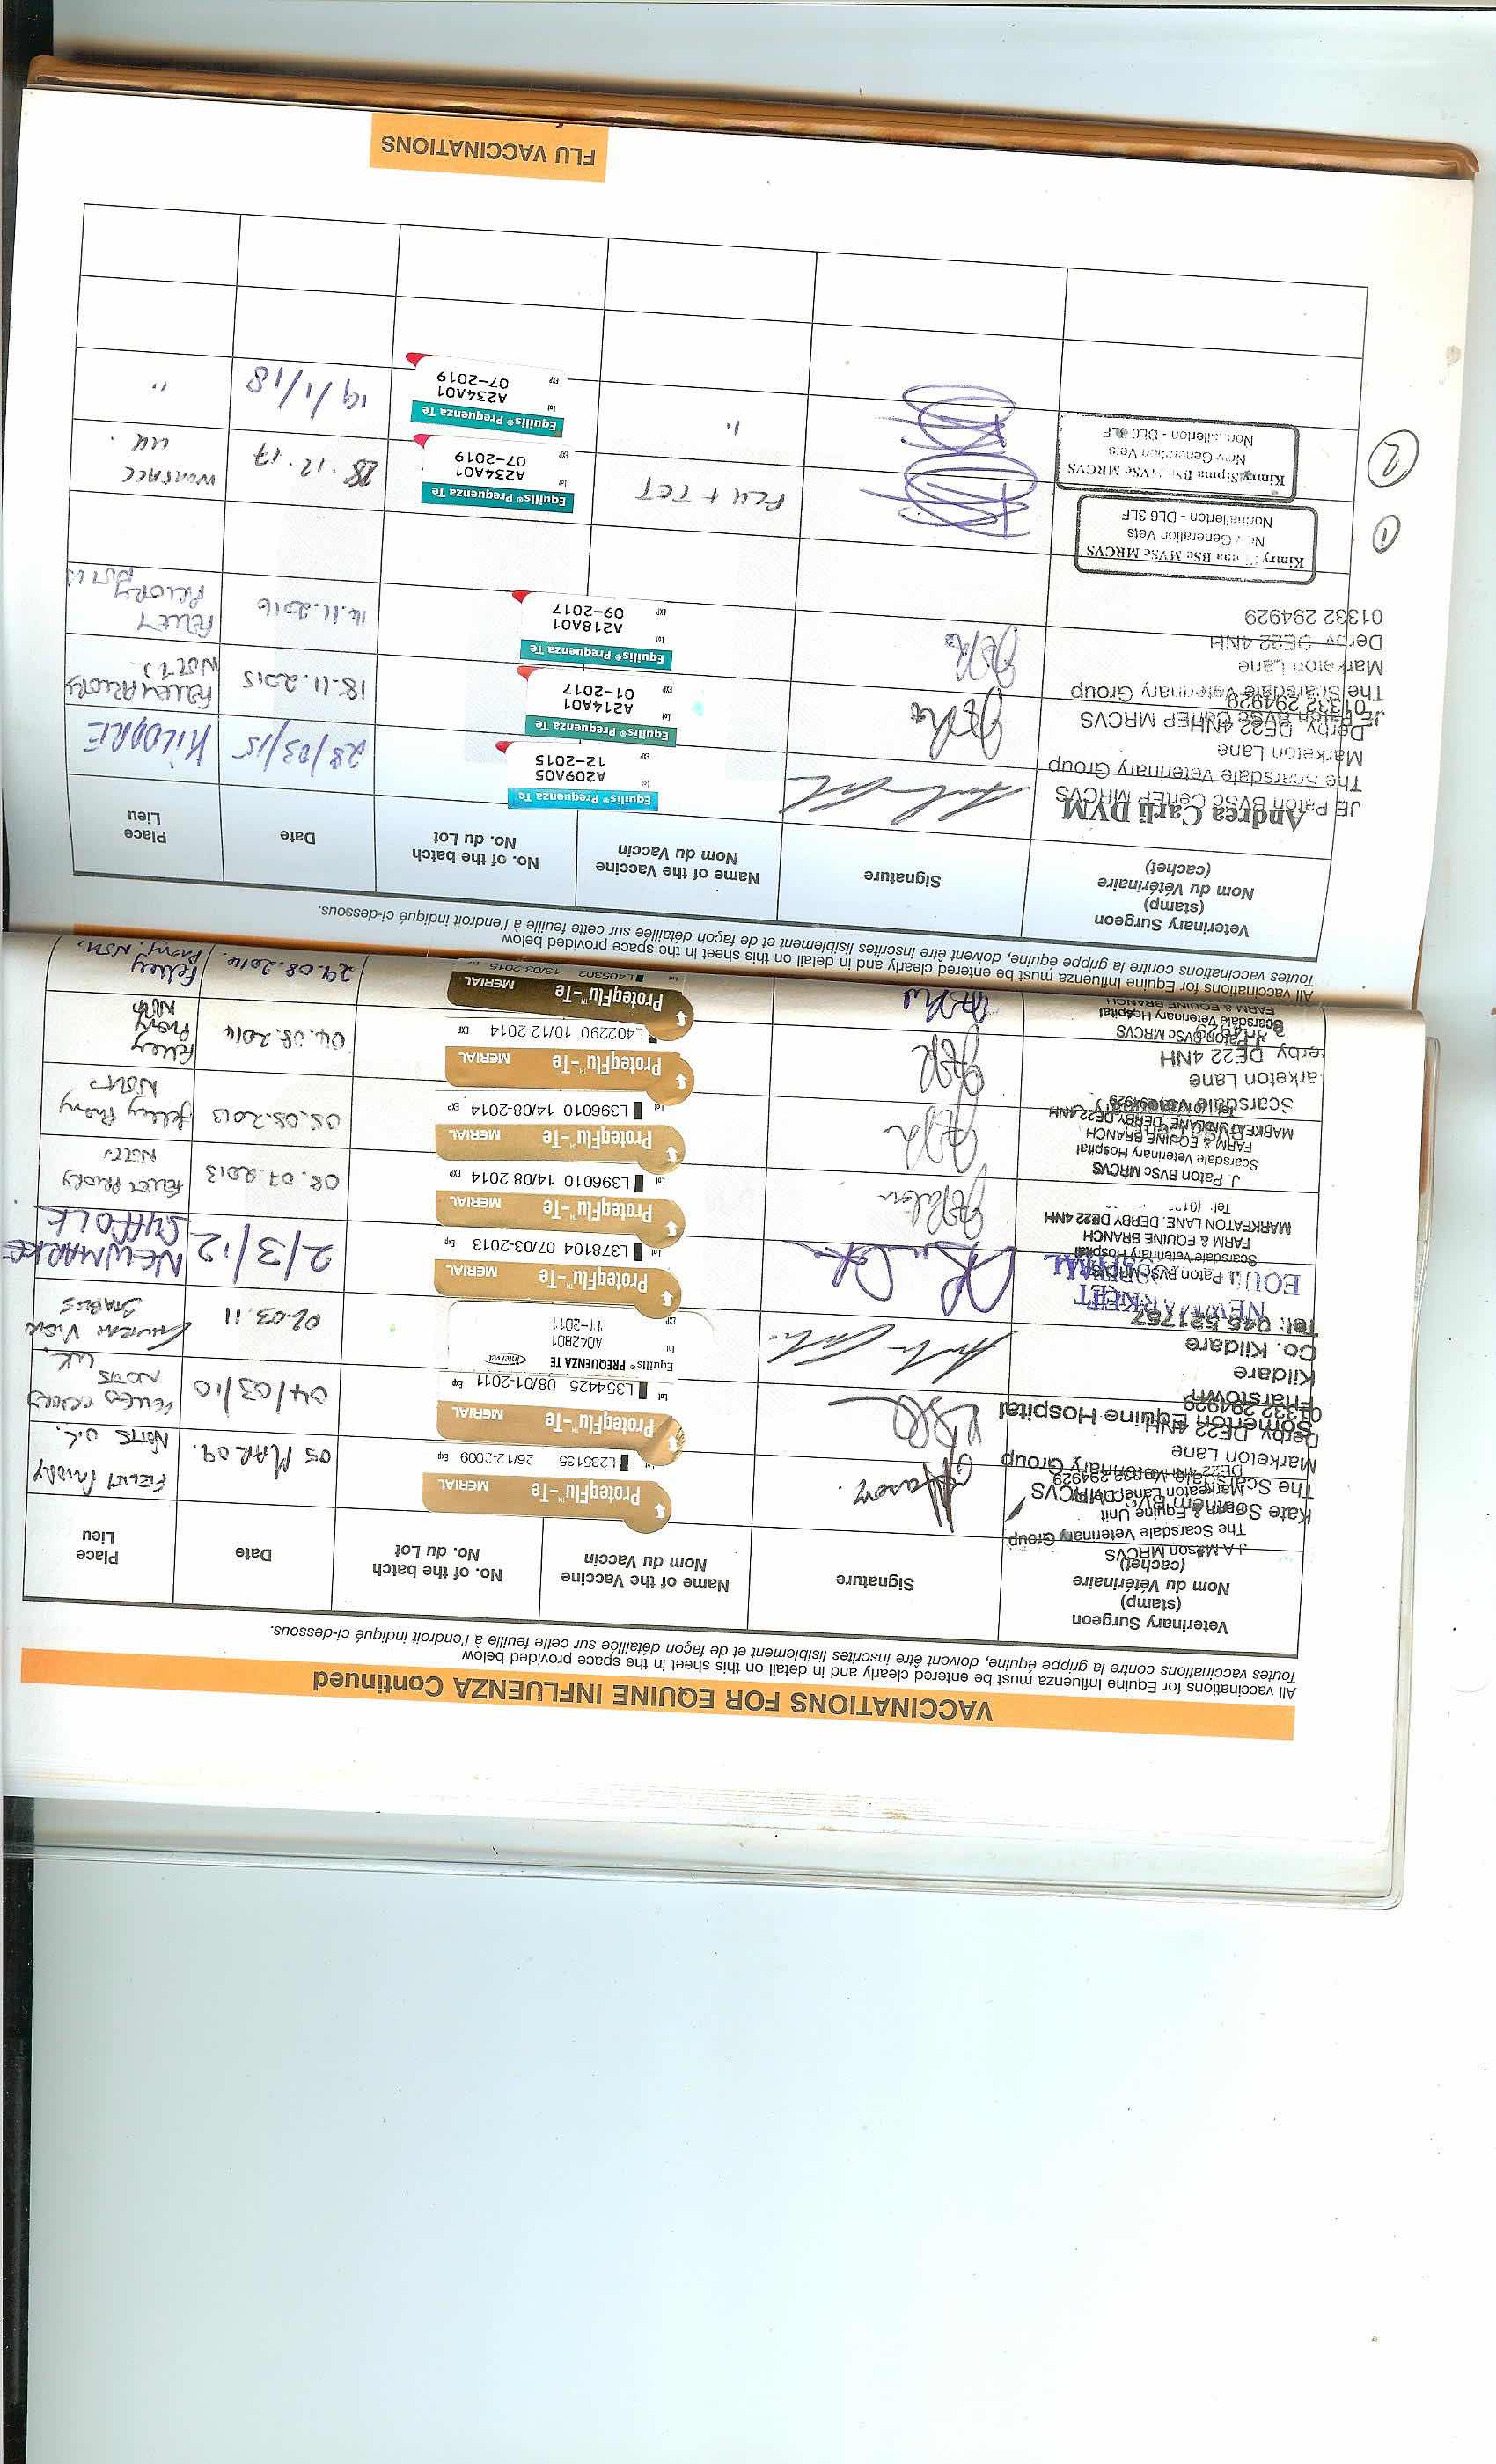 VACCINATIONS FOR EQUINE INFLUENZA Continued
All vaccinations for Equine Influenza must be entered clearly and in detail on this sheet in the space provided below
Toutes vaccinations contre la grippe équine, doivent être inscrites lisiblement et de façon détaillée sur cette feuille à l'endroit indiqué ci-dessous.
Place
Lieu
Date
No. of the batch
No. du Lot
Name of the Vaccine
Nom du Vaccin
Signature
Veterinary Surgeon
(stamp)
Nom du Vétérinaire
(cachet)
05 MAR 09.
ProteqFlu™-Te MERIAL
L235135 26/12-2009
J A Mason MRCVS
The Scarsdale Veterinary Group
Farm & Equine Unit
NOTTS UK
04/03/10
ProteqFlu™-Te MERIAL
Lot L354425 08/01-2011 Exp
The Scarsdale Veterinary Group
Marketon Lane
Derby DE22 4NH
01332 294929
02.03.11
Equilis® PREQUENZA TE Intervet
Lot A042B01
EXP 11-2011
Somerton Equine Hospital
Kildare
Co. Kildare
Tel: 045 521757
NEWMARKET
SUFFOLK
2/3/12
ProteqFlu™-Te MERIAL
Lot L378104 07/03-2013 Exp
NEWMARKET
EQUINE HOSPITAL
FELLEY PRIORY
NOTTS
08.07.2013
ProteqFlu™-Te MERIAL
Lot L396010 14/08-2014 EXP
J. Paton BVSc MRCVS
Scarsdale Veterinary Hospital
FARM & EQUINE BRANCH
MARKEATON LANE, DERBY DE22 4NH
Felley Priory
NOTTS
05.08.2013
ProteqFlu™-Te MERIAL
Lot L396010 14/08-2014 EXP
J. Paton BVSc MRCVS
Scarsdale Veterinary Hospital
FARM & EQUINE BRANCH
MARKEATON LANE, DERBY DE22 4NH
Felley
Priory
Notts
04.08.2014
ProteqFlu™-Te MERIAL
L402290 10/12-2014 EXP
Marketon Lane
Derby DE22 4NH
Felley
Priory, Notts.
29.08.2014.
ProteqFlu™-Te MERIAL
Lot L405302 13/03-2015
J. Paton BVSc MRCVS
Scarsdale Veterinary Hospital
FARM & EQUINE BRANCH
All vaccinations for Equine Influenza must be entered clearly and in detail on this sheet in the space provided below
Toutes vaccinations contre la grippe équine, doivent être inscrites lisiblement et de façon détaillée sur cette feuille à l'endroit indiqué ci-dessous.
Place
Lieu
Date
No. of the batch
No. du Lot
Name of the Vaccine
Nom du Vaccin
Signature
Veterinary Surgeon
(stamp)
Nom du Vétérinaire
(cachet)
KILDARE
28/03/15
Equilis® Prequenza Te
Lot A209A05
EXP 12-2015
Andrea Carli DVM
FELLEY PRIORY
NOTTS
18.11.2015
Equilis® Prequenza Te
Lot A214A01
EXP 01-2017
JE Paton BVSc CertEP MRCVS
The Scarsdale Veterinary Group
Marketon Lane
Derby DE22 4NH
01332 294929
FELLEY
PRIORY
NOTTS
14.11.2016
Equilis® Prequenza Te
Lot A218A01
EXP 09-2017
JE Paton BVSc CertEP MRCVS
The Scarsdale Veterinary Group
Markeaton Lane
Derby DE22 4NH
01332 294929
WORSALL
UK.
28.12.17
Equilis® Prequenza Te
Lot A234A01
EXP 07-2019
FLU + TET
Kimry Sipma BSc MVSc MRCVS
New Generation Vets
Northallerton - DL6 3LF
1
"
19/1/18
Equilis® Prequenza Te
Lot A234A01
EXP 07-2019
"
Kimry Sipma BSc MVSc MRCVS
New Generation Vets
Northallerton - DL6 3LF
2
FLU VACCINATIONS